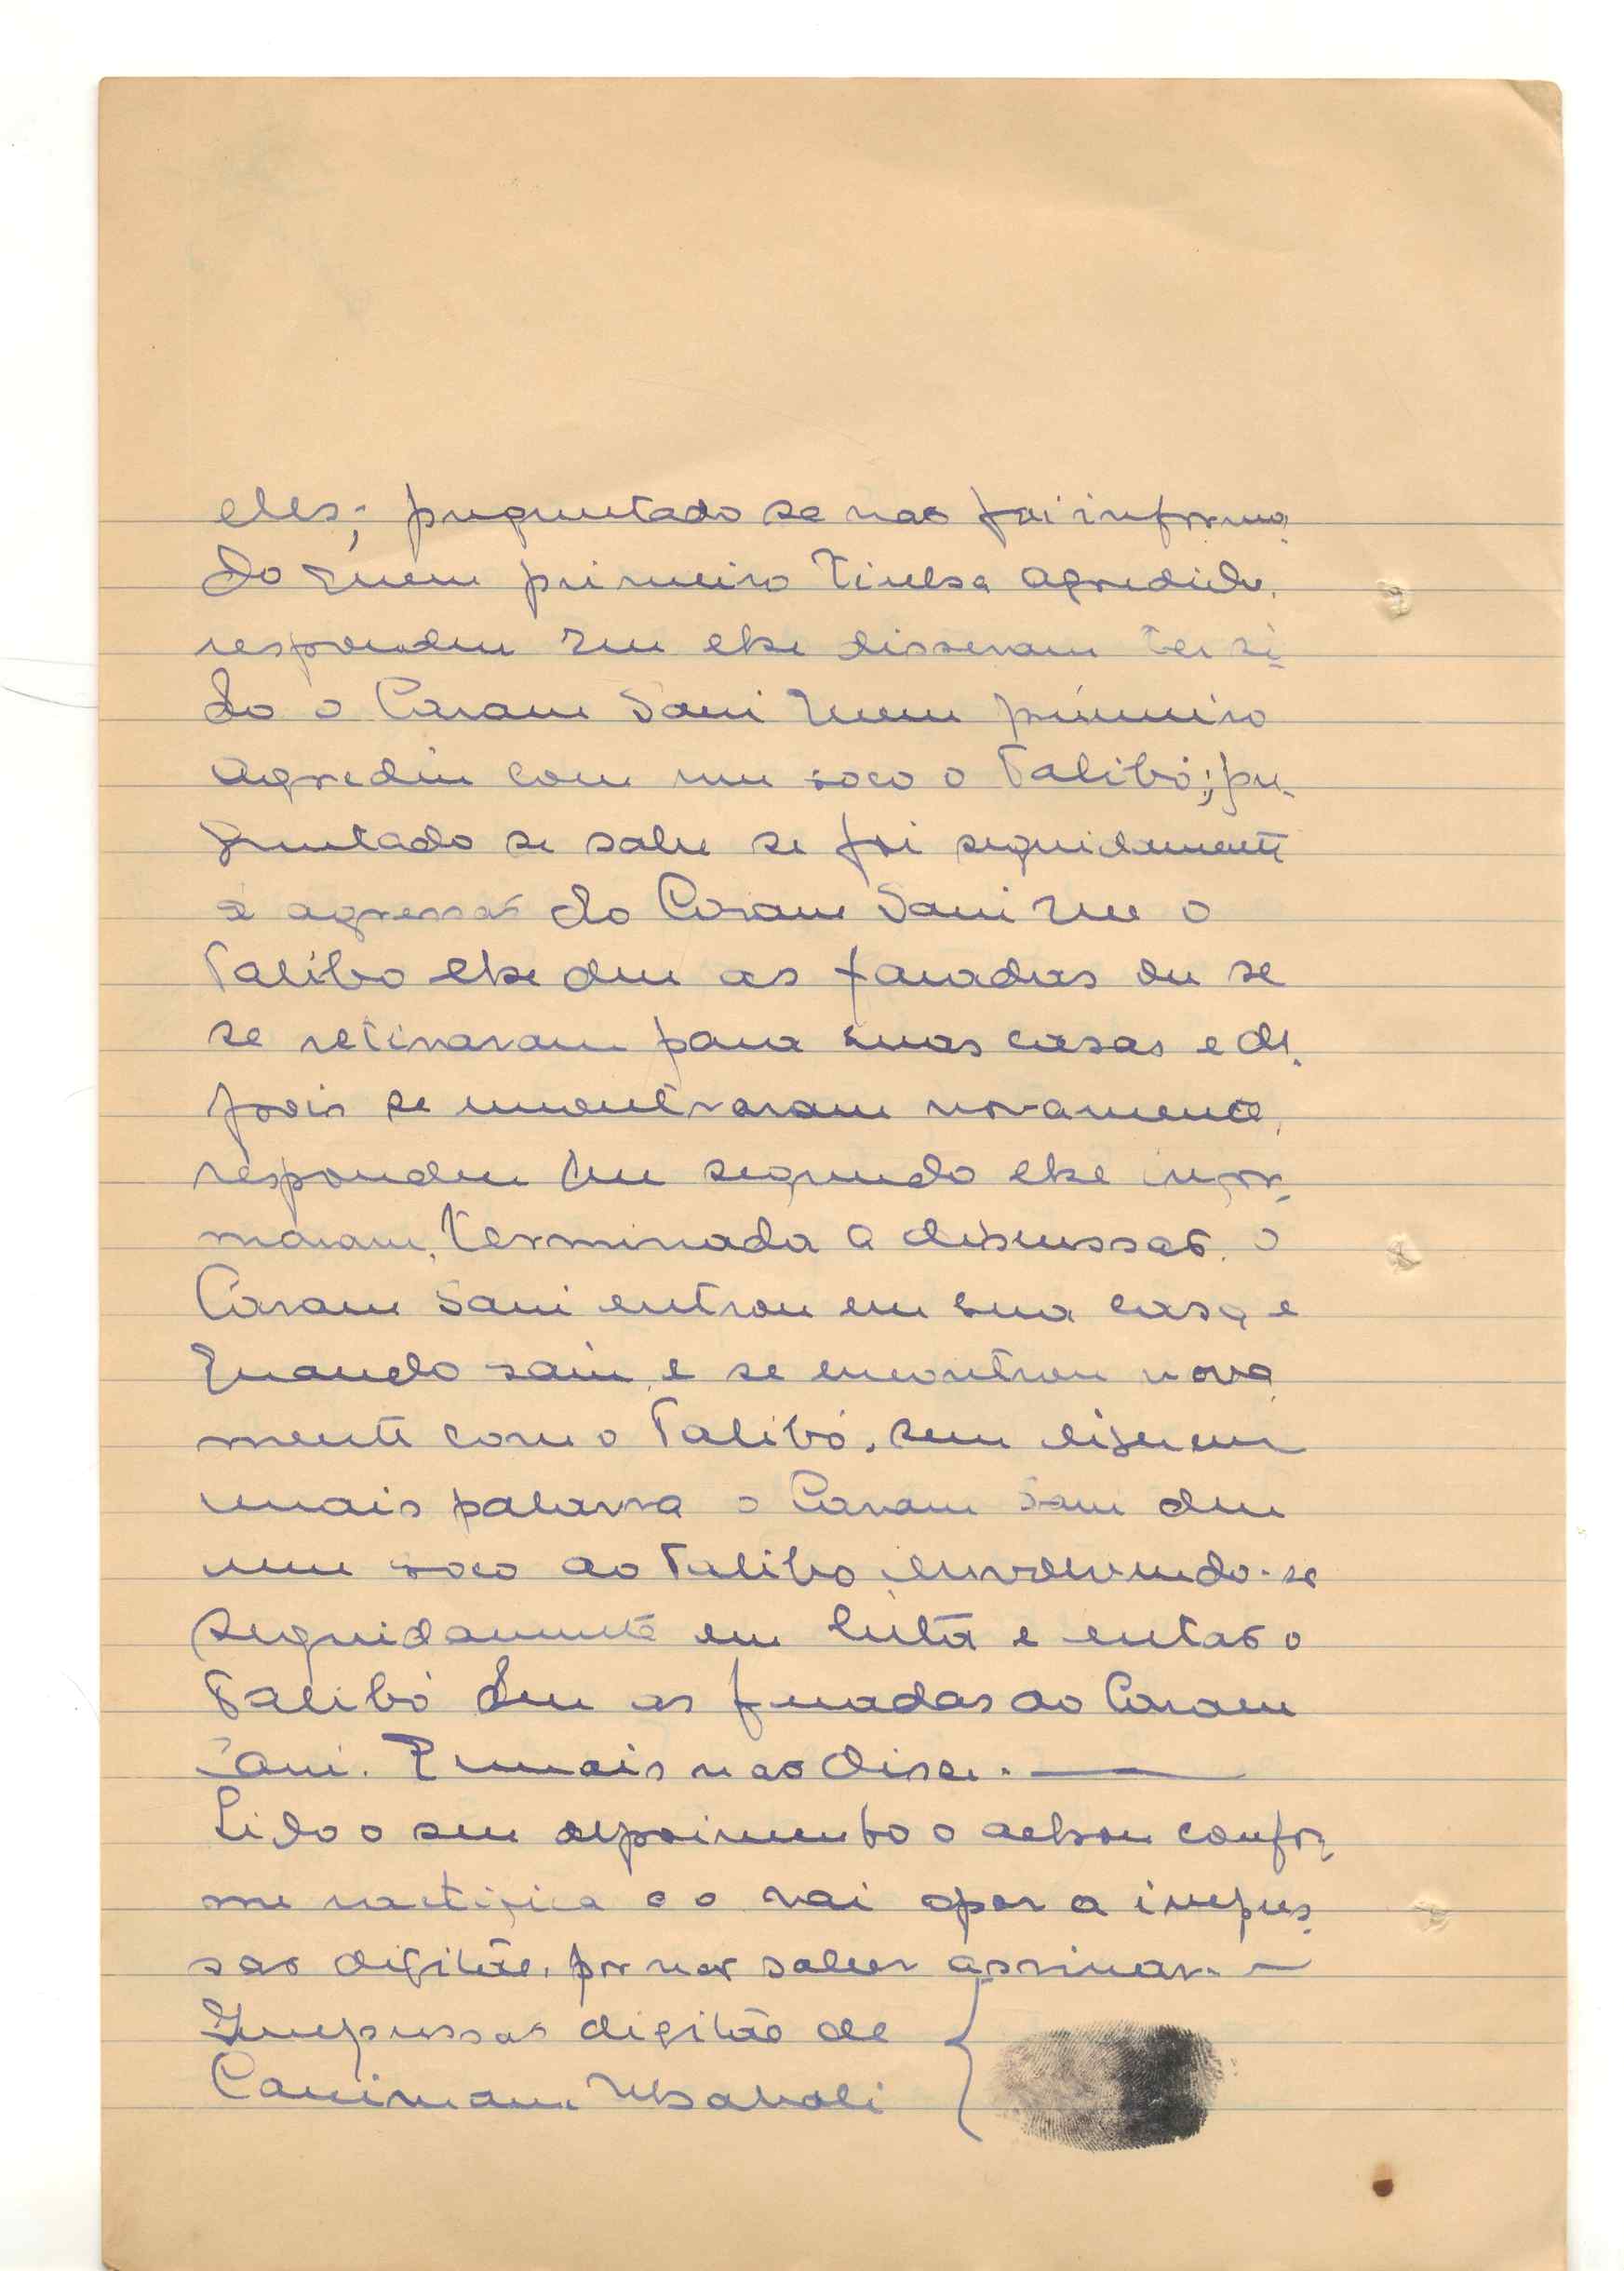 eles; preguntado se nao foi informa-
do quem primeiro tivesse agredido,
respondeu que elhe disseram ter si-
do o Caram Sani quem primeiro
agrediu com um soco o Talibó; pre-
guntado se sabe se foi seguidamente
a agressão do Caram Sani que o
Talibo elhe deu as facadas ou se
se retiraram para suas casas e de-
pois se encontraram novamente,
respondeu que segundo elhe infor-
maram, terminada a discussão, o
Caram Sani entrou em sua casa e
quando saiu, e se encontrou nova
mente com o Talibó, sem dizerem
mais palavra o Caram Sani deu
um soco ao Talibo, envolvendo-se
seguidamente em luta e então o
Talibó deu as facadas ao Caram
Sani. E mais nao disse.
Lido o seu depoimento o achou confor-
me ractifica e o vai apor a impres-
sao digital, por nao saber assinar.
Impressao digital de